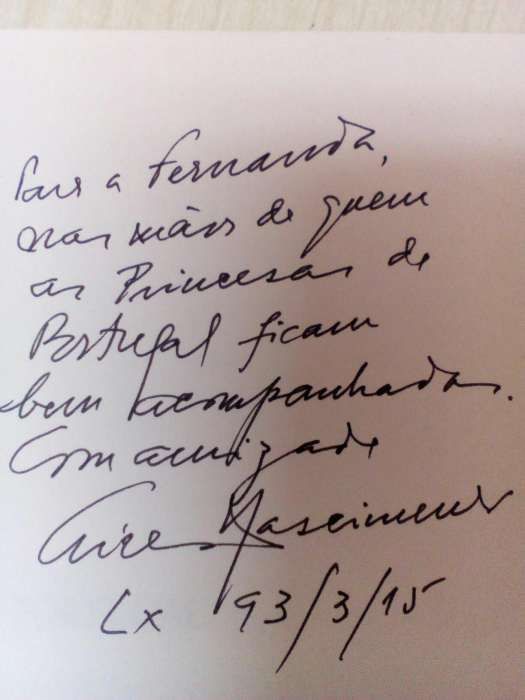 Para a Fernanda,
nas mãos de quem
as Princesas de
Portugal ficam
bem acompanhadas.
Com amizade
Aires Nascimento
Lx 93/3/15